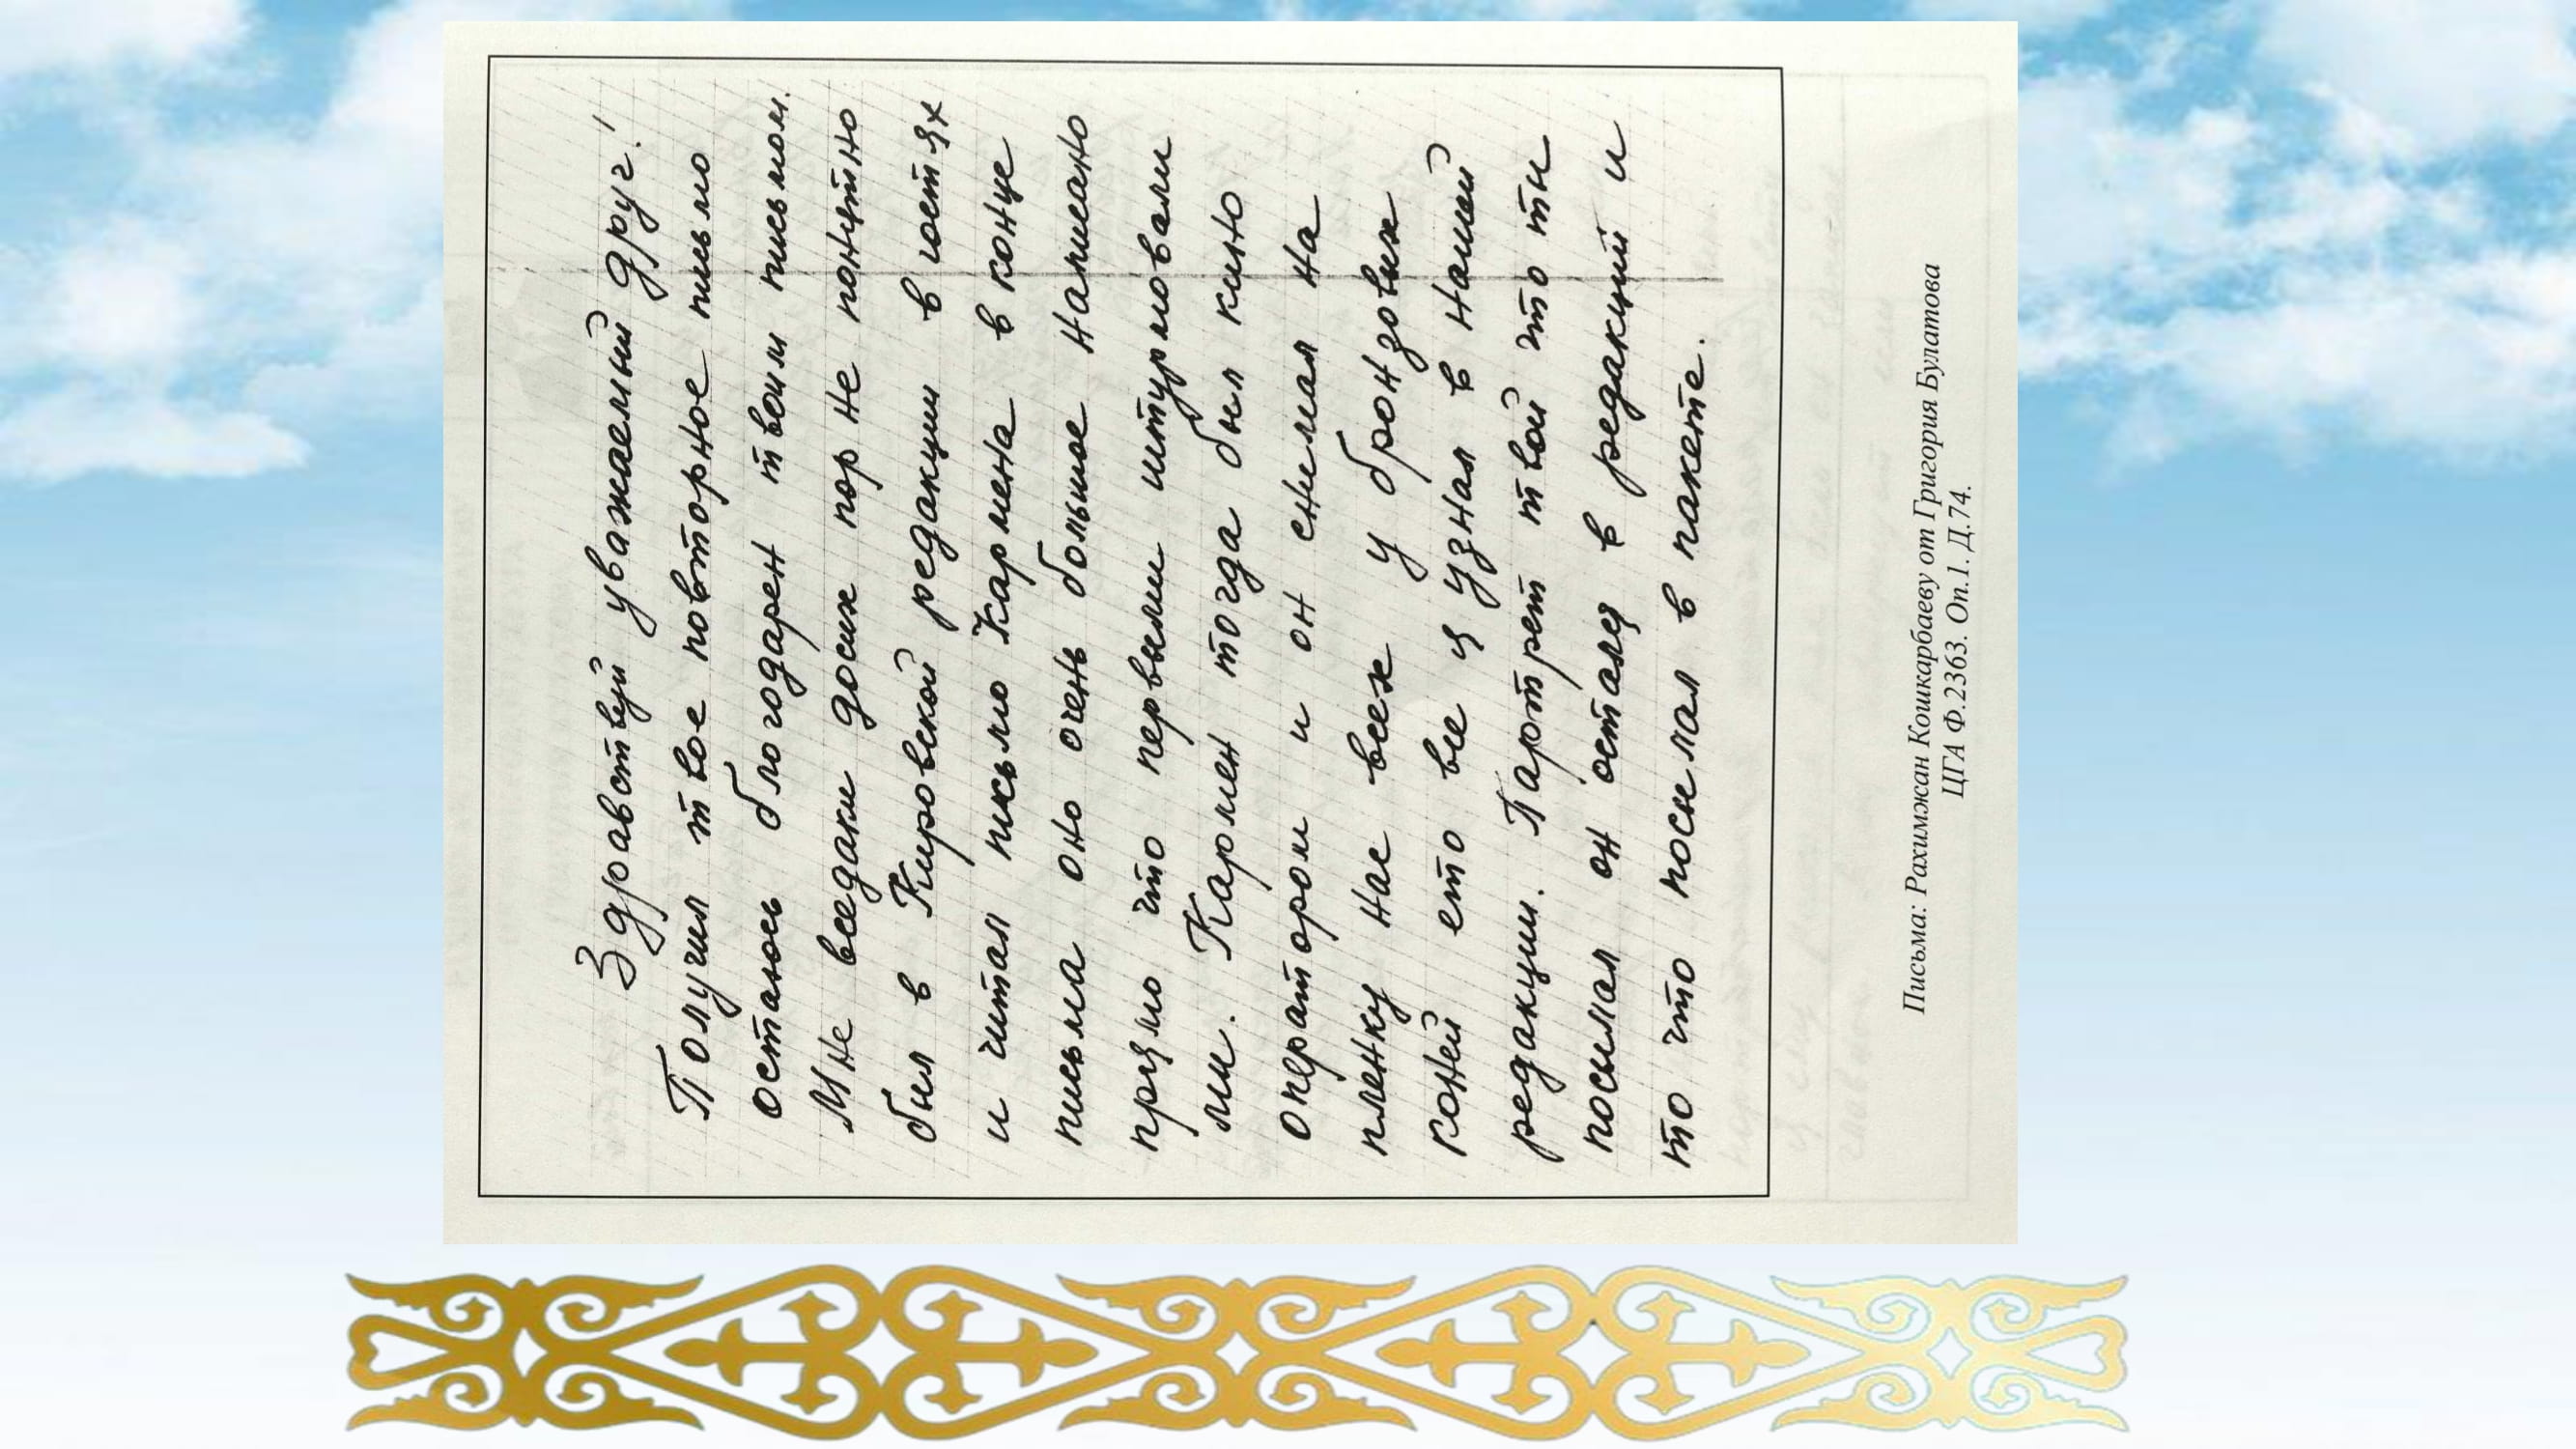 Здравствуй уважаемый друг!
Получил твое повторное письмо
остаюсь благодарен твоим письмом.
Мне вседаки досих пор не понятно
был в Кировской редакции в гостях
и читал письмо Кармена в конце
письма оно очень большое написано
прямо что первыми штурмовали
ми. Кармен тогда был кино
оператором и он снимал на
пленку нас всех у бронзовых
коней ето все я узнал в нашей
редакции. Партрет твой что ти
посылал он остался в редакций и
то что посылал в пакете.
Письма: Рахимжан Кошкарбаеву от Григория Булатова
ЦГА Ф.2363. Оп.1. Д.74.